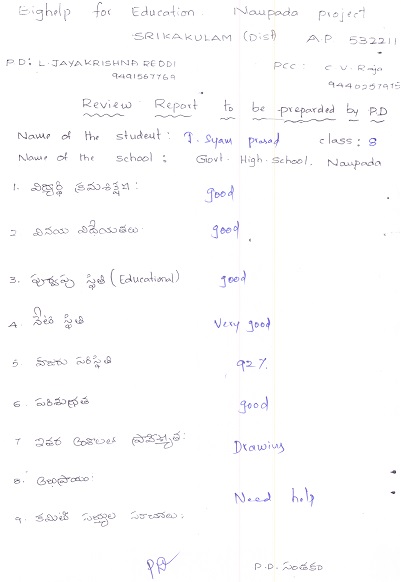 Eighelp for Education. Naupada project
SRIKAKULAM (Dist) A.P 532211
P.D: L. JAYAKRISHNA REDDI PCC: C.V. Raju
9491567769 9440257975
Review Report to be preparded by P.D
Name of the student: T. Syam prasad class: 8
Name of the school: Govt. High-School. Naupada
1. విద్యార్థి క్రమశిక్షణ: good
2 వినయ విధేయతలు good
3. పూర్వపు స్థితి (Educational) good
4 నేటి స్థితి Very good
5. హాజరు పరిస్థితి 92%
6. పరిశుభ్రత good
7 ఇతర అంశాలలో ప్రావీణ్యత: Drawing
8. అభిప్రాయం: Need help
9. కమిటీ సభ్యుల సూచనలు:
PD P.D. సంతకం